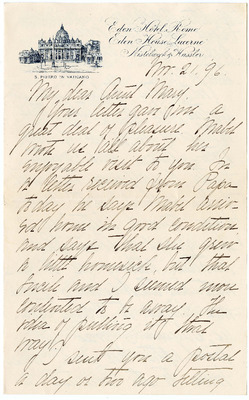 Eden Hôtel, Rome
Eden House, Lucerne
Nistelweck & Hassler
S. PIETRO IN VATICANO
Nov. 21. 96
My dear Aunt Mary,
Your letter gave me a
great deal of pleasure. Mabel
wrote us all about her
enjoyable visit to you. In
a letter received from Papa
to day he says Mabel arriv-
ed home in good condition
and says that she grew
a little homesick, but that
and I seemed more
contented to be away. The
idea of putting it that
way!
I sent you a postal
a day or two ago telling